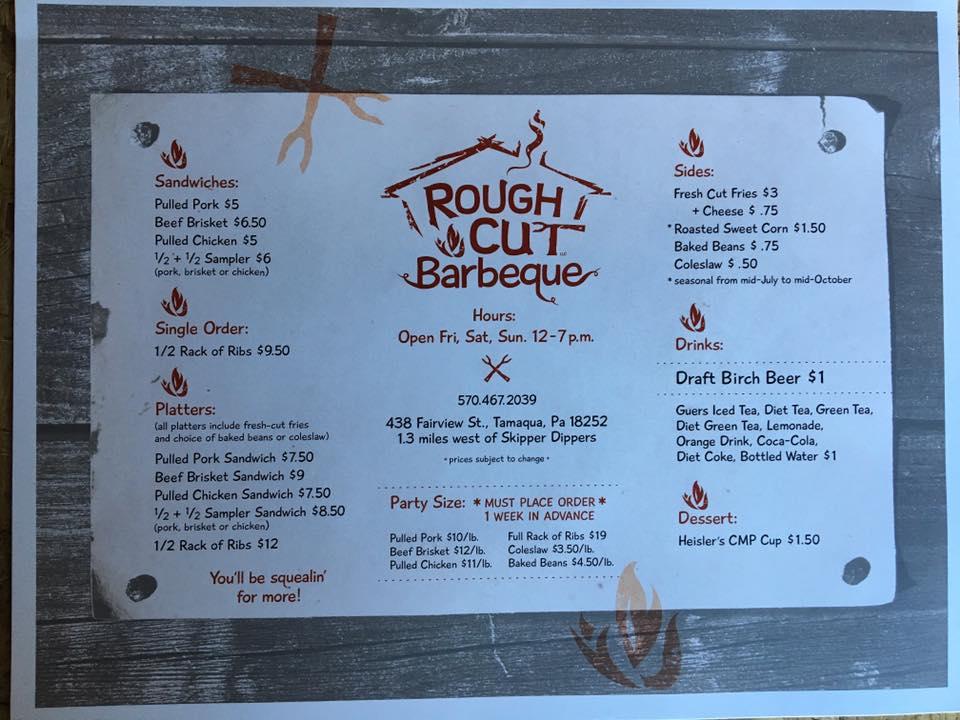 Sandwiches:
Pulled Pork $5
Beef Brisket $6.50
Pulled Chicken $5
1/2 + 1/2 Sampler $6
(pork, brisket or chicken)
Single Order:
1/2 Rack of Ribs $9.50
Platters:
(all platters include fresh-cut fries
and choice of baked beans or coleslaw)
Pulled Pork Sandwich $7.50
Beef Brisket Sandwich $9
Pulled Chicken Sandwich $7.50
1/2 + 1/2 Sampler Sandwich $8.50
(pork, brisket or chicken)
1/2 Rack of Ribs $12
You'll be squealin'
for more!
ROUGH
CUT LLC
Barbeque
Hours:
Open Fri, Sat, Sun. 12-7 p.m.
570.467.2039
438 Fairview St., Tamaqua, Pa 18252
1.3 miles west of Skipper Dippers
*prices subject to change*
Party Size: * MUST PLACE ORDER *
1 WEEK IN ADVANCE
Pulled Pork $10/lb.
Beef Brisket $12/lb.
Pulled Chicken $11/lb.
Full Rack of Ribs $19
Coleslaw $3.50/lb.
Baked Beans $4.50/lb.
Sides:
Fresh Cut Fries $3
+ Cheese $ .75
*Roasted Sweet Corn $1.50
Baked Beans $ .75
Coleslaw $ .50
* seasonal from mid-July to mid-October
Drinks:
Draft Birch Beer $1
Guers Iced Tea, Diet Tea, Green Tea,
Diet Green Tea, Lemonade,
Orange Drink, Coca-Cola,
Diet Coke, Bottled Water $1
Dessert:
Heisler's CMP Cup $1.50